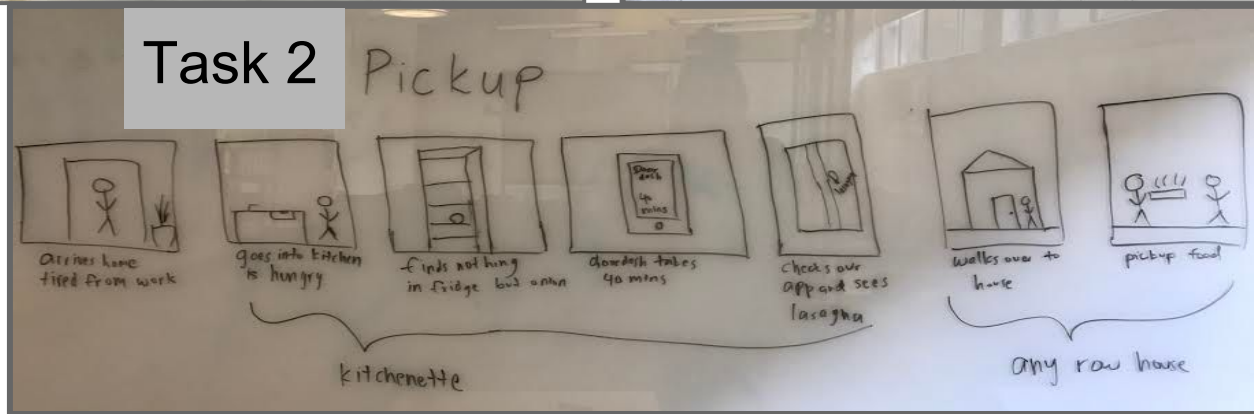 Task 2
Pickup
Door
dash
40
mins
arrives home
tired from work
goes into kitchen
is hungry
finds nothing
in fridge but onion
doordash takes
40 mins
checks our
app and sees
lasagna
walks over to
house
pickup food
kitchenette
any row house